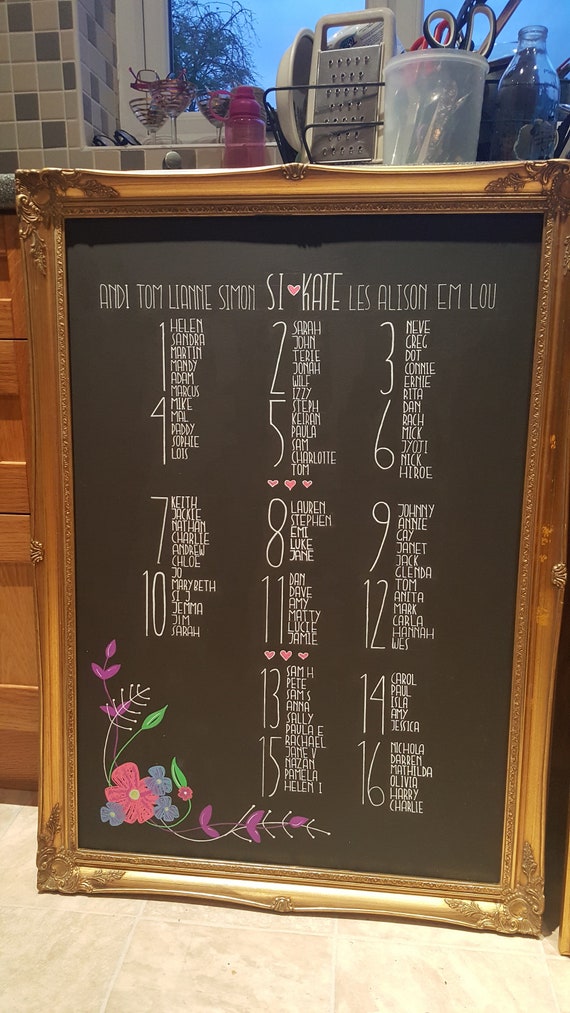 ANDI TOM LIANNE SIMON SI ♥ KATE LES ALISON EM LOU
1
HELEN
SANDRA
MARTIN
MANDY
ADAM
MARCUS
2
SARAH
JOHN
TERIE
JONAH
WILF
IZZY
3
NEVE
GREG
DOT
CONNIE
ERNIE
RITA
4
MIKE
MAL
PADDY
SOPHIE
LOIS
5
STEPH
KEIRAN
PAULA
SAM
CHARLOTTE
TOM
6
DAN
RACH
MICK
JYOJI
NICK
HIROE
7
KEITH
JACKIE
NATHAN
CHARLIE
ANDREW
CHLOE
8
LAUREN
STEPHEN
EMI
LUKE
JANE
9
JOHNNY
ANNIE
GAY
JANET
JACK
GLENDA
10
JO
MARYBETH
SI J
JEMMA
JIM
SARAH
11
DAN
DAVE
AMY
MATTY
LUCIE
JAMIE
12
TOM
ANITA
MARK
CARLA
HANNAH
WES
13
SAM H
PETE
SAM S
ANNA
SALLY
PAULA E
14
CAROL
PAUL
ISLA
AMY
JESSICA
15
RACHAEL
JANE V
NAZAN
PAMELA
HELEN I
16
NICHOLA
DARREN
MATHILDA
OLIVIA
HARRY
CHARLIE